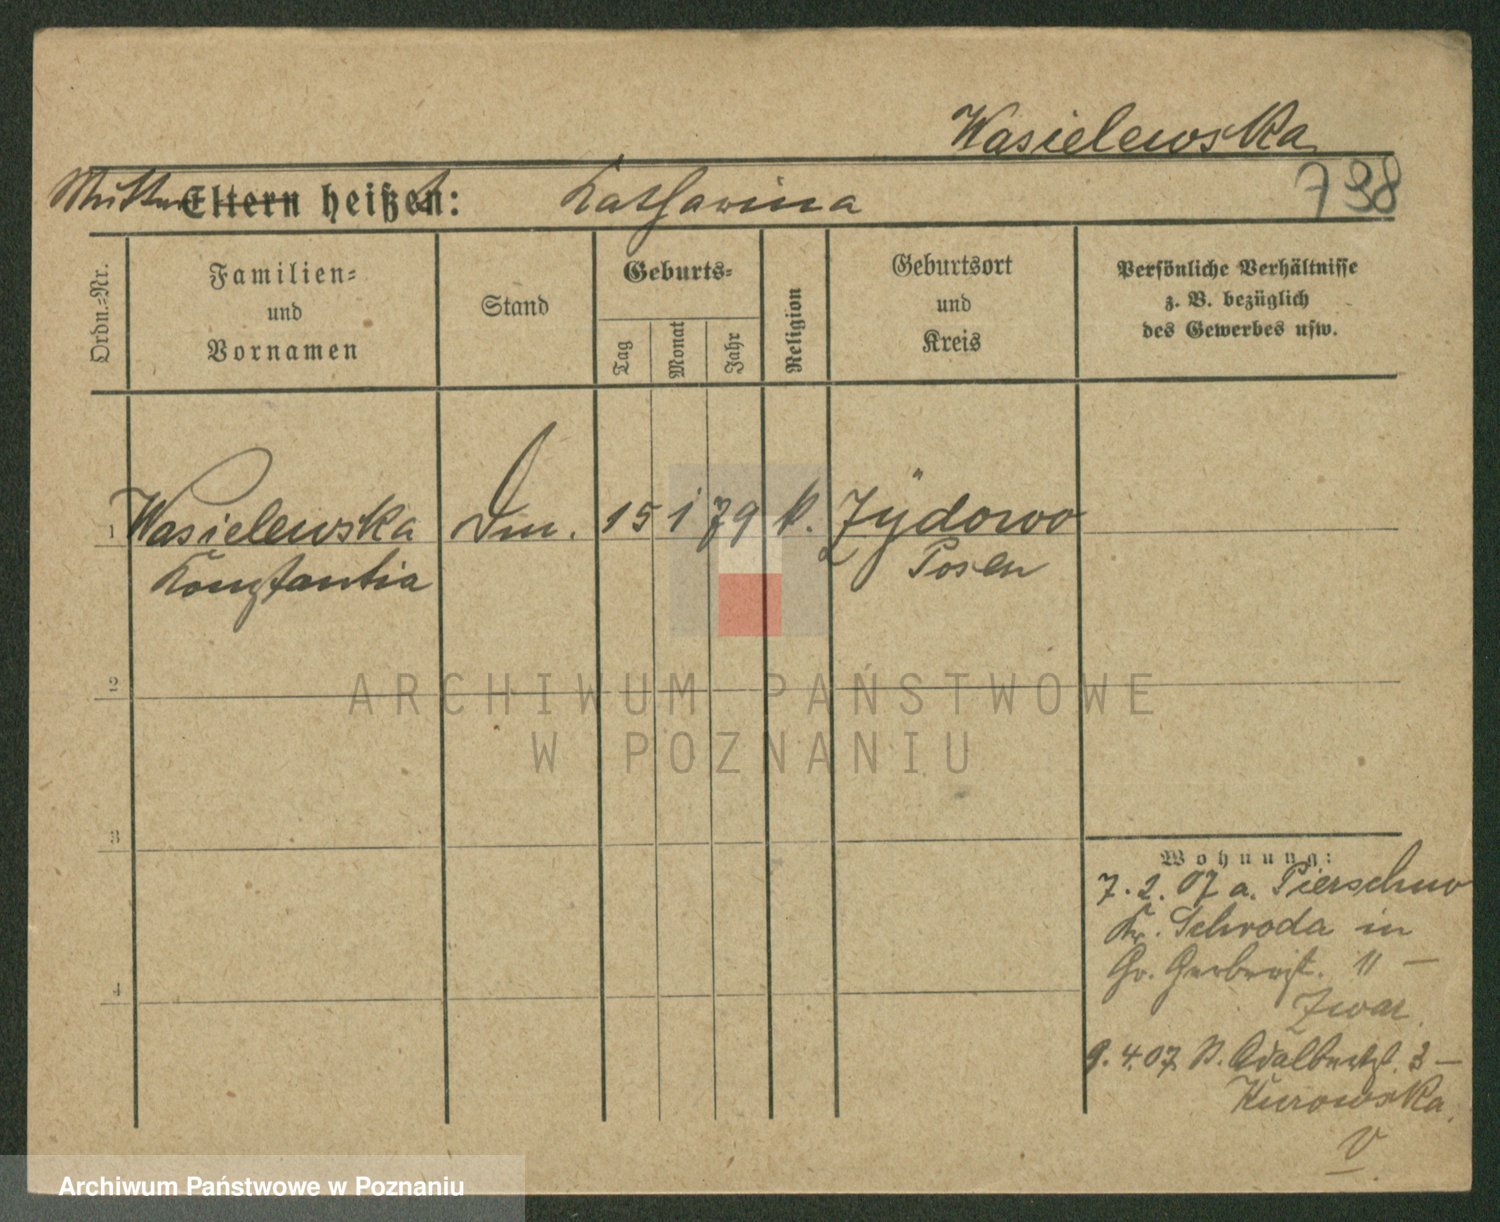 Wasielewska
738
Mutter Eltern heißen: t Katharina
Ordn.-Nr.
Familien-
und
Vornamen
Stand
Geburts-
Tag
Monat
Jahr
Religion
Geburtsort
und
Kreis
Persönliche Verhältnisse
z. B. bezüglich
des Gewerbes usw.
1 Wasielewska Dm. 15 1 79 k. Zÿdowo
Konstantia Posen
2
3
4
Wohnung:
7. 2. 07 a. Pierschno
Kr. Schroda in
Gr. Gerberst. 11 —
9. 4. 07 St. Adalbertst. 3 —
Kurowska
V
ARCHIWUM PAŃSTWOWE
W POZNANIU
Archiwum Państwowe w Poznaniu